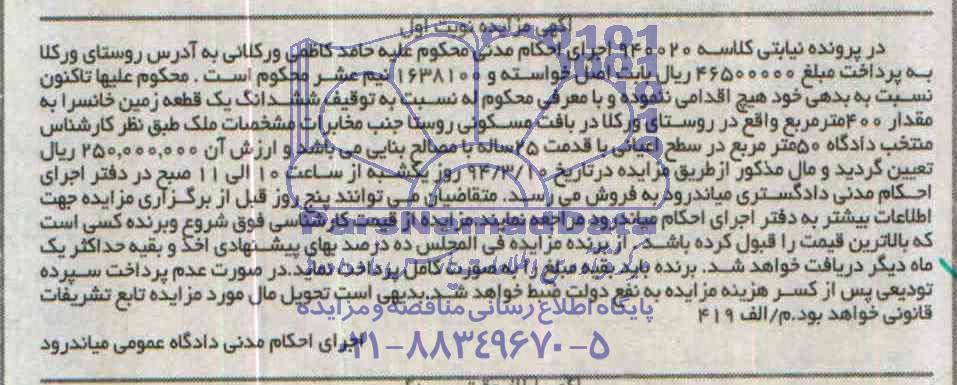 آگهی مزایده نوبت اول
در پرونده نیابتی کلاسه ۹۴۰۰۲۰ اجرای احکام مدنی محکوم علیه حامد کاظمی ورکلائی به آدرس روستای ورکلا
به پرداخت مبلغ ۴۶۵۰۰۰۰۰ ریال بابت اصل خواسته و ۱۶۳۸۱۰۰ نیم عشر محکوم است . محکوم علیها تاکنون
نسبت به بدهی خود هیچ اقدامی ننموده و با معرفی محکوم له نسبت به توقیف ششدانگ یک قطعه زمین خانسرا به
مقدار ۴۰۰مترمربع واقع در روستای ورکلا در بافت مسکونی روستا جنب مخابرات مشخصات ملک طبق نظر کارشناس
منتخب دادگاه ۵۰متر مربع در سطح اعیانی با قدمت ۲۵ساله با مصالح بنایی می باشد و ارزش آن ۲۵۰,۰۰۰,۰۰۰ ریال
تعیین گردید و مال مذکور ازطریق مزایده درتاریخ ۹۴/۳/۱۰ روز یکشنبه از ساعت ۱۰ الی ۱۱ صبح در دفتر اجرای
احکام مدنی دادگستری میاندرود به فروش می رسد. متقاضیان می توانند پنج روز قبل از برگزاری مزایده جهت
اطلاعات بیشتر به دفتر اجرای احکام میاندرود مراجعه نمایند.مزایده از قیمت کارشناسی فوق شروع وبرنده کسی است
که بالاترین قیمت را قبول کرده باشد. از برنده مزایده فی المجلس ده درصد بهای پیشنهادی اخذ و بقیه حداکثر یک
ماه دیگر دریافت خواهد شد. برنده باید بقیه مبلغ را به صورت کامل پرداخت نماید.در صورت عدم پرداخت سپرده
تودیعی پس از کسر هزینه مزایده به نفع دولت ضبط خواهد شد.بدیهی است تحویل مال مورد مزایده تابع تشریفات
قانونی خواهد بود.م/الف ۴۱۹
اجرای احکام مدنی دادگاه عمومی میاندرود
ParsNamadData
پایگاه اطلاع رسانی مناقصه و مزایده
۰۲۱-۸۸۳۴۹۶۷۰-۵